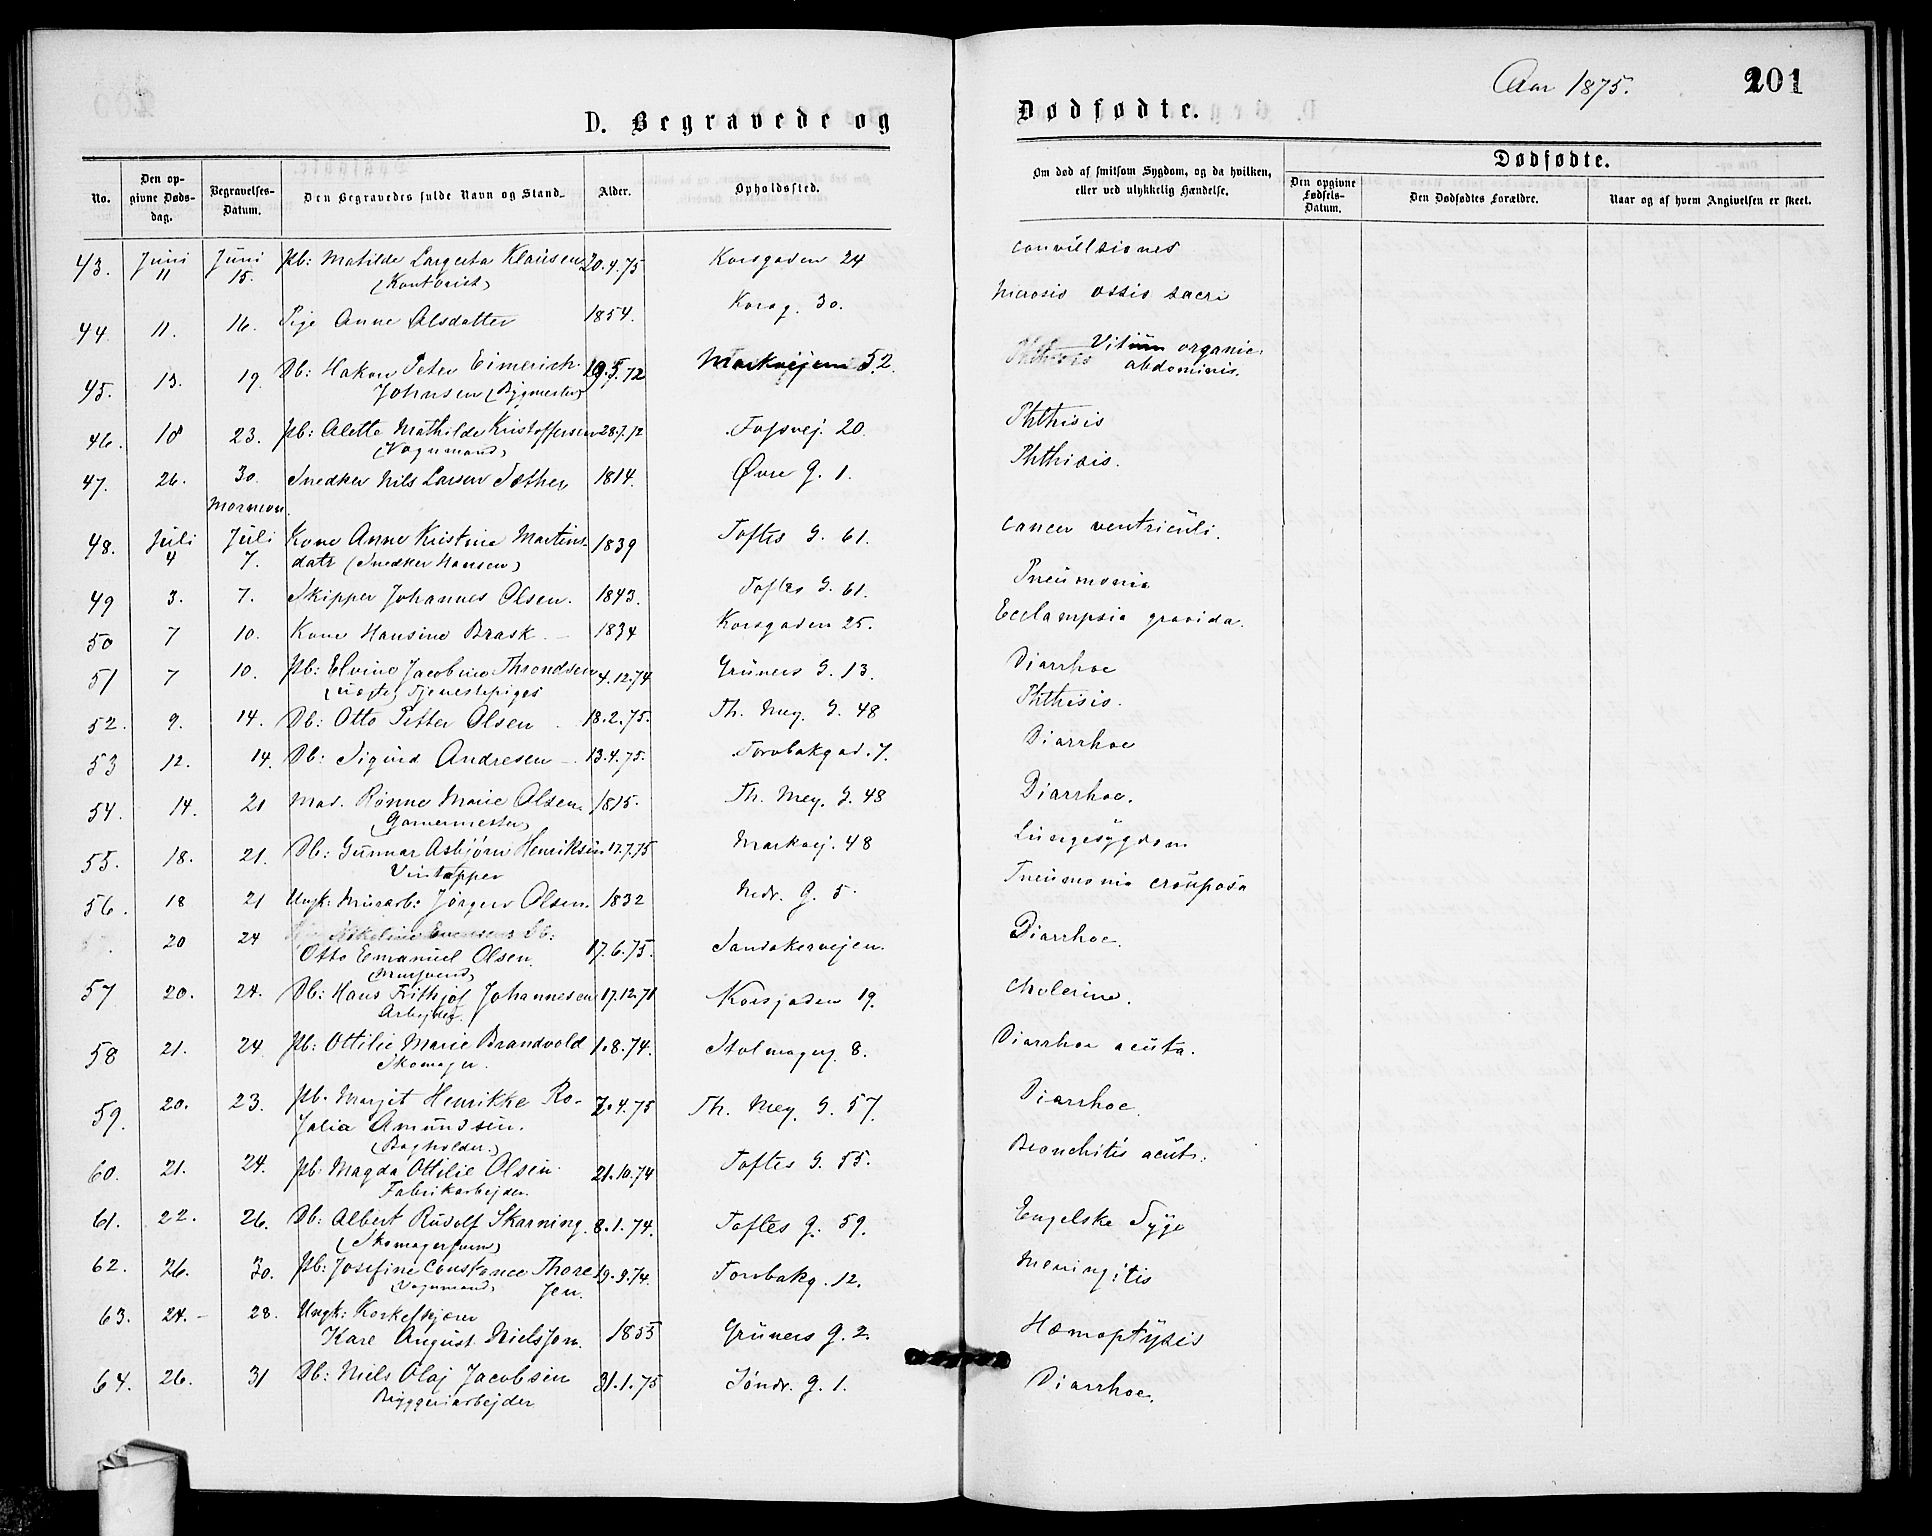 Aar 1875.
201
D. Begravede og
Dødfødte.
No.
Den opgivne Dødsdag.
Begravelses-Datum.
Den Begravedes fulde Navn og Stand.
Alder.
Opholdssted.
Om død af smitsom Sygdom, og da hvilken, eller ved ulykkelig Hændelse.
Dødfødte.
Den opgivne Fødsels-Datum.
Den Dødfødtes Forældre.
Naar og af hvem Angivelsen er skeet.
43. Juni 11 Juni 15. Pb: Matilde Lagerta Klausen 20.4.75 Korsgaden 24 Convulsiones
(Kontorist)
44. 11. 16. Pige Anne Olsdatter 1854. Korsg. 30. Necrosis ossis sacri
45. 13. 19. Db: Hakon Peter Eimerich 19.5.72 Markvejen 52. Phthisis Vitium organic.
Johnsen (Bygmester) abdominis.
46. 18 23. Pb: Alette Mathilde Kristoffersen 28.7.72 Fossvej. 20. Phthisis
(Vognmand)
47. 26. 30. Snedker Nils Larsen Sæther 1814. Øvre G. 1. Phthisis.
Mormon.
48. Juli 4 Juli 7. Kone Anne Kristine Martins- 1839 Toftes G. 61. Cancer ventriculi.
datr (Snedker Hansen)
49 3. 7. Skipper Johannes Olsen. 1843. Toftes G. 61. Pneumonia
50 7 10. Kone Hansine Brask. 1834 Korsgaden 25. Ecclampsia gravida.
51 7 10. Pb: Elvine Jacobine Throndsen 4.12.74 Grüners G. 13. Diarrhoe
(uægte) Tjenestepiges
52. 9. 14. Db: Otto Petter Olsen 18.2.75. Th. Mey. G. 48 Phthisis.
53 12. 14. Db: Sigurd Andresen 13.4.75. Torvbakgad. 7. Diarrhoe
54. 14. 21 Mad. Rønne Marie Olsen 1815. Th. Mey. G. 48 Diarrhoe.
(Garvermester)
55. 18. 21. Db: Gunnar Asbjørn Henriksen 17.7.75 Markvej. 48 Lungesygdom
Vintapper
56. 18 21 Ungk: Murarb: Jørgen Olsen. 1832 Nedr. G. 5 Pneumonia crouposa
20 24 Db:
Otto Emanuel Olsen. 17.6.75. Sandakervejen. Diarrhoe.
(Mursvend)
57 20. 24. Db: Hans Frithjof Johannesen 17.12.71 Korsgaden 19. Cholerine.
Arbejder.
58 21. 24. Pb: Ottilie Marie Brandvold 1.8.74. Stolmagerg 8. Diarrhoe acuta.
Skomager.
59. 20. 23. Pb. Margit Henrikke Ro- 7.4.75 Th. Mey. G. 57. Diarrhoe.
salia Amundsen.
(Bogholder.)
60. 21. 24. Pb. Magda Ottilie Olsen 21.10.74 Toftes G. 55. Bronchitis acut.
Fabrikarbejder.
61. 22. 26. Db: Albert Rudolf Skarning. 8.1.74. Toftes G. 59. Engelske Syge
(Skomagersvend)
62. 26. 30. Pb: Josefine Constance Thore 19.9.74. Torvbakg. 12. Meningitis
(Vognmand) sen.
63. 24. 28. Ungk: Korkeskjærer
Karl August Nielsson. 1855 Grüners G. 2. Hæmoptysis
64. 26. 31 Db: Niels Olaj Jacobsen 31.1.75 Søndr. G. 1. Diarrhoe.
Bryggeriarbejder